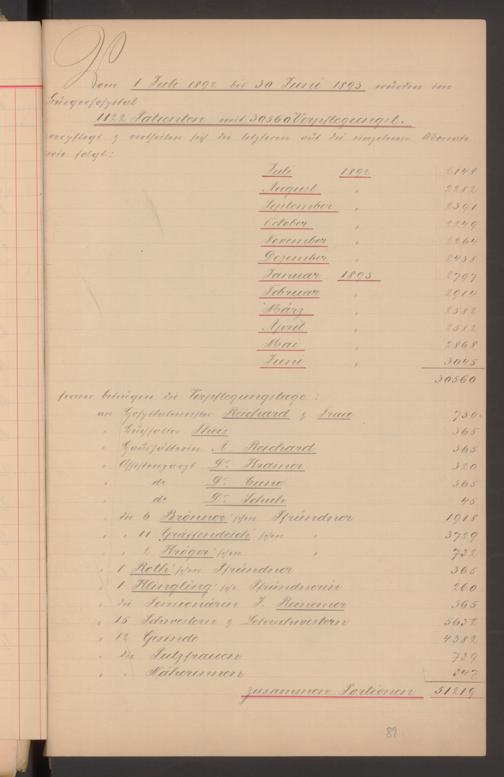 Vom 1 Juli 1892 bis 30 Juni 1893 wurden im
Bürgerhospital
1122 Patienten mit 30560 Verpflegungst.
verpflegt & vertheilen sich die letzteren auf die einzelnen Monate
wie folgt:
Juli 1892 2148
August " 2282
September " 2391
October " 2249
November " 2264
Dezember " 2438
Januar 1893 2797
Februar " 2910
März " 2582
April " 2582
Mai " 2868
Juni " 3045
30560
ferner betrugen die Verpflegungstage:
an Hospitalmeister Reichard & Frau 730
" Buchhalter 365
" Haushälterin A. Reichard 365
" Assistenzarzt Dr. Kramer 320
" do Dr. Cuno 365
" do Dr. Schuh 45
" die 6 Brönner'schen Pfründner 1918
" " 11 Gräffendeich'schen " 3729
" " 2 Kröger'schen " 732
" 1 Roth'schen Pfründner 365
" 1 Klingling'sche Pfründnerin 260
" die Pensionärin J. Remmer 365
" 15 Schwestern & Lehrschwestern 5632
" 12 Gesinde 4382
" die Putzfrauen 739
" " Näherinnen 347
zusammen Portionen 51219
89